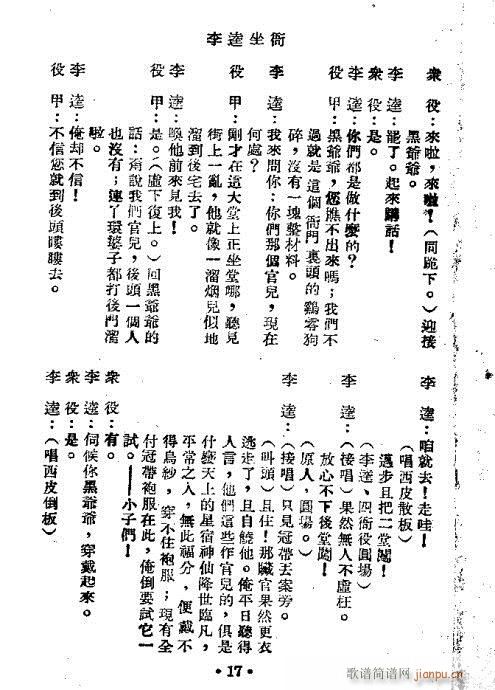 李逵坐衙
衆　役：來啦，來啦！（同跪下。）迎接
黑爺爺。
李　逵：罷了。起來講話！
衆　役：是。
李　逵：你們都是做什麽的？
役　甲：黑爺爺，您瞧不出來嗎；我們不
過就是這個衙門裏頭的鷄零狗
碎，沒有一塊整材料。
李　逵：我來問你：你們那個官兒，現在
何處？
役　甲：剛才在這大堂上正坐堂哪，聽見
街上一亂，他就像一溜烟兒似地
溜到後宅去了。
李　逵：喚他前來見我！
役　甲：是。（虛下復上。）回黑爺爺的
話：甭說我們官兒，後頭一個人
也沒有；連丫環婆子都打後門溜
啦。
李　逵：俺却不信！
役　甲：不信您就到後頭瞜瞜去。
李　逵：咱就去！走哇！
（唱西皮散板）
邁步且把二堂闖！
（李逵、四衙役圓場）
李　逵：（接唱）果然無人不虛枉。
放心不下後堂闖！
（原人，圓場。）
李　逵：（接唱）只見冠帶丟案旁。
（叫頭）且住！那贓官果然更衣
逃走了，且自饒他。俺平日聽得
人言，他們這些作官兒的，俱是
什麽天上的星宿神仙降世臨凡，
平常之人，無此福分，便戴不
得烏紗，穿不住袍服；現有全
付冠帶袍服在此，俺倒要試它一
試。——小子們！
衆　役：有。
李　逵：伺候你黑爺爺，穿戴起來。
衆　役：是。
李　逵：（唱西皮倒板）
·17·
歌谱简谱网
jianpu.cn